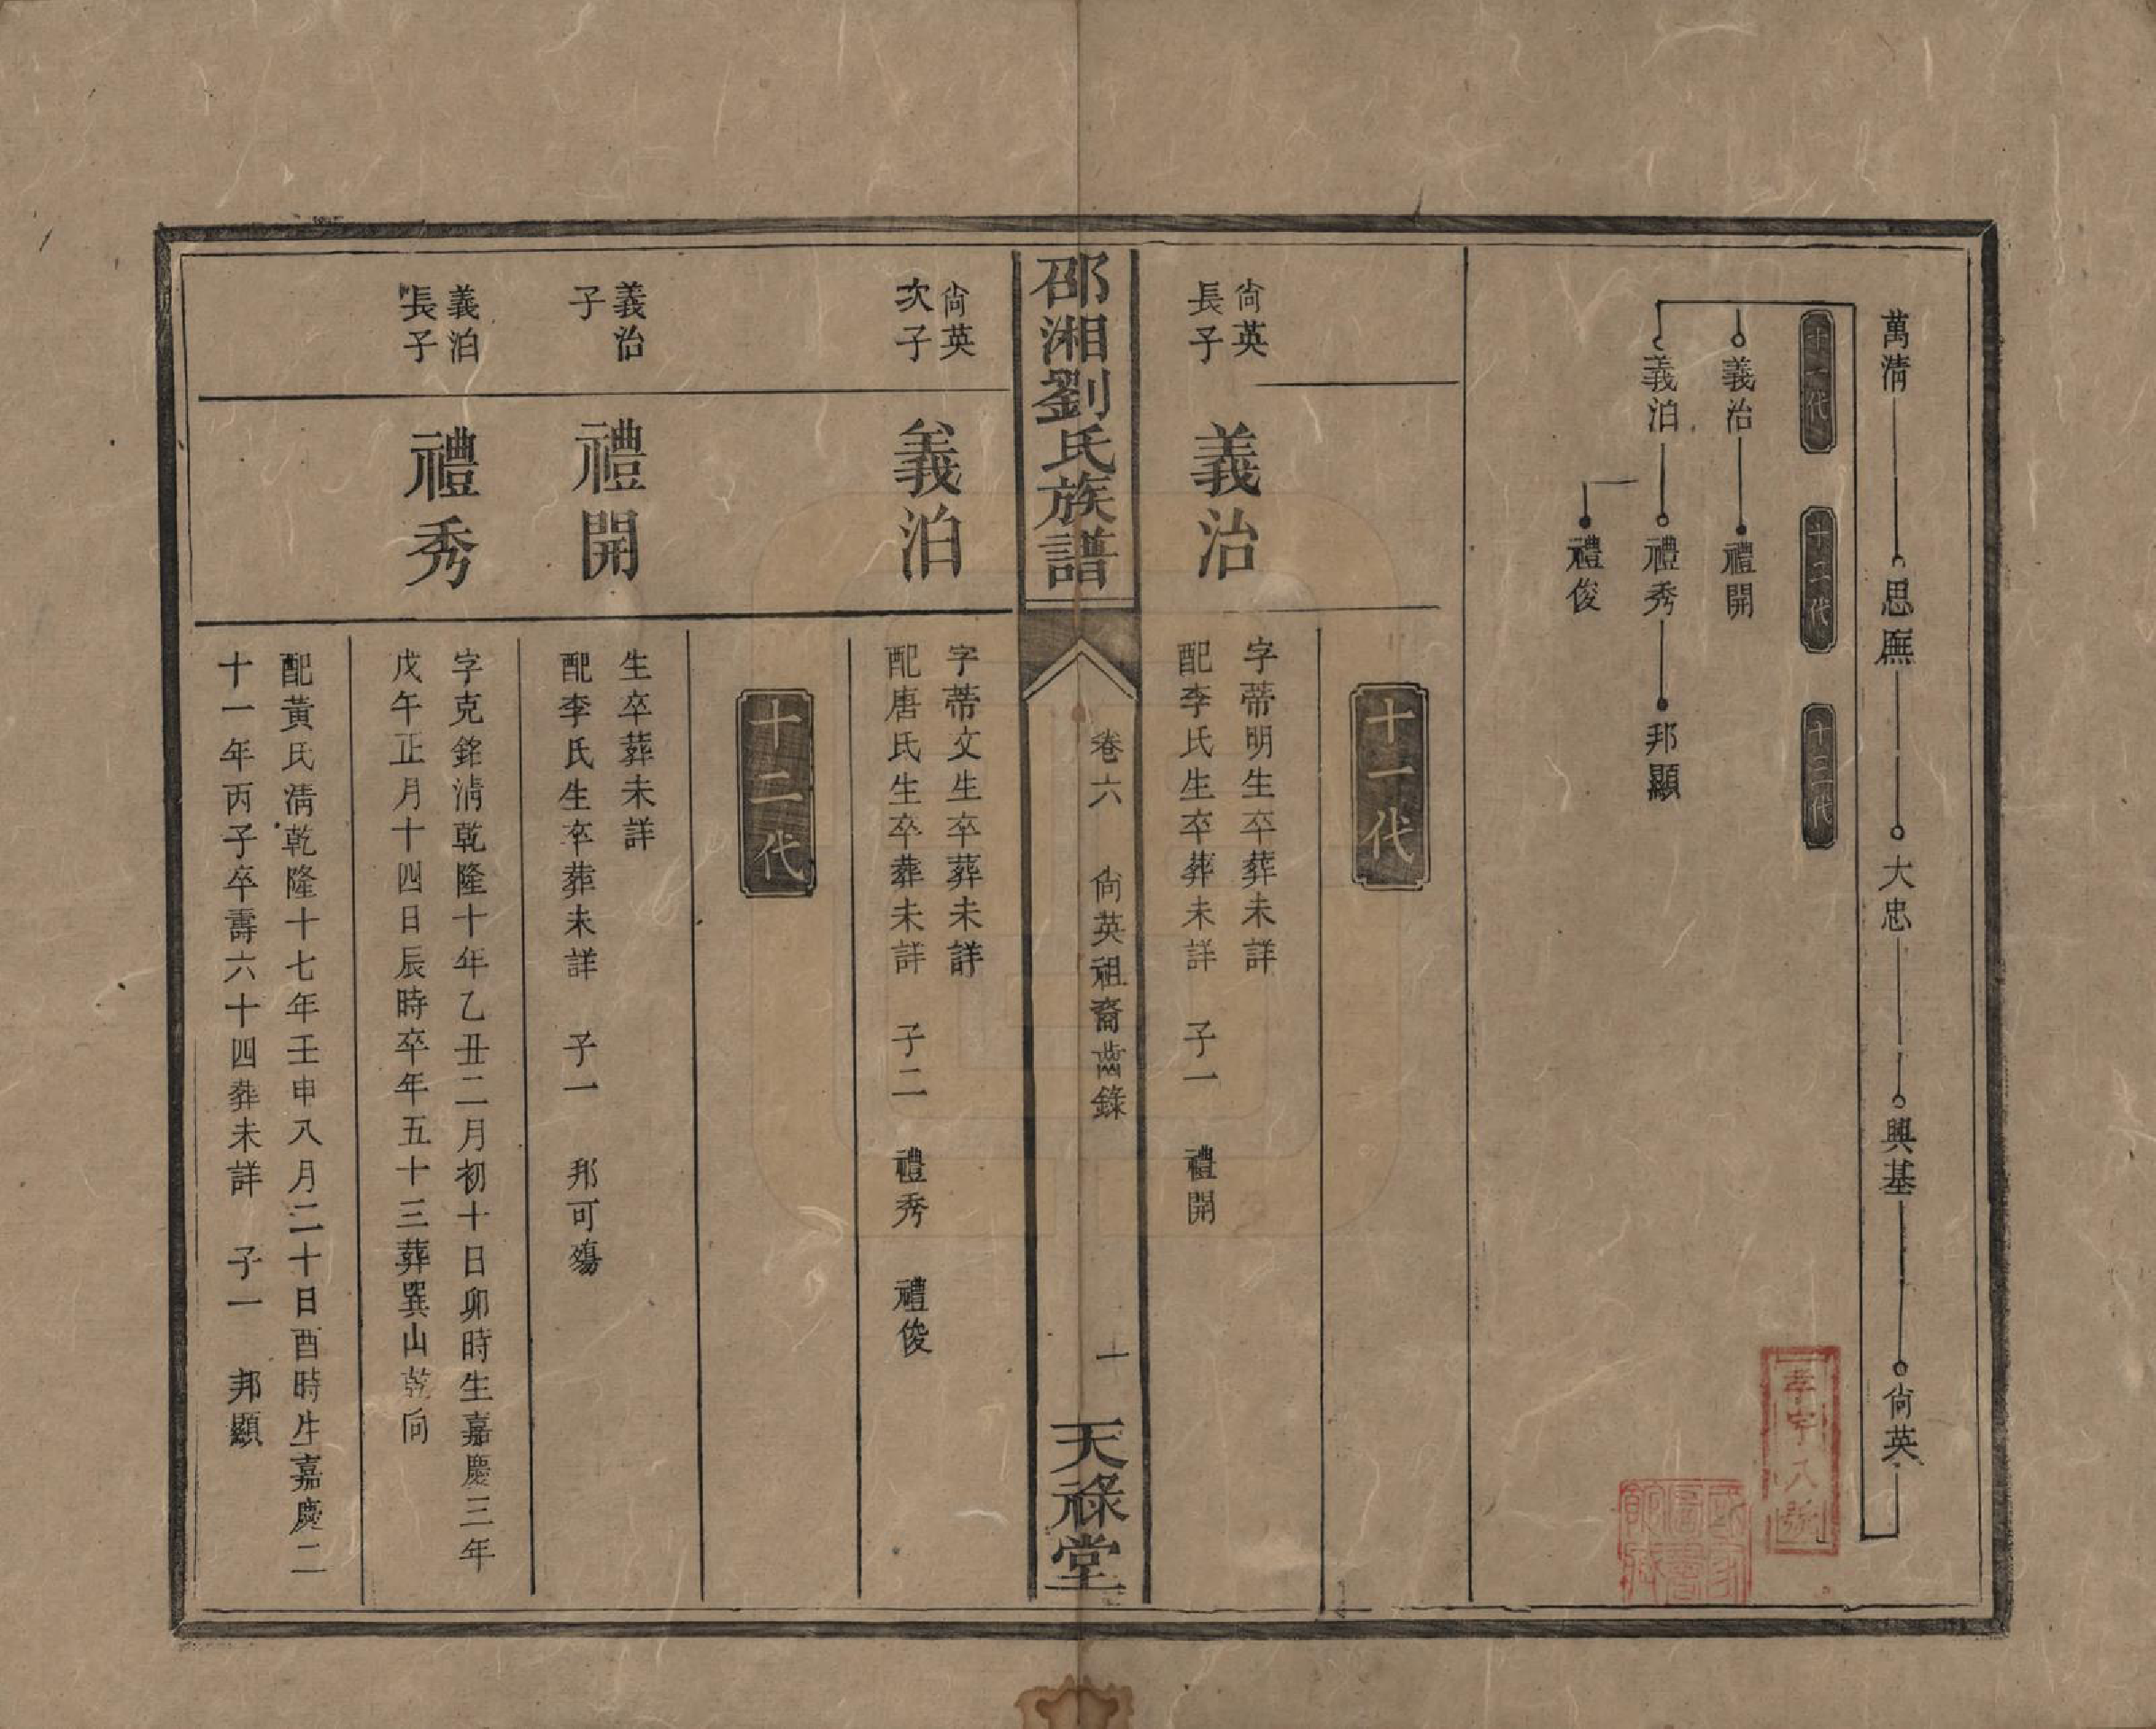 萬清 思廡 大忠 興基 尙英
十一代 十二代 十三代
義治 禮開
義泊 禮秀 邦顯
禮俊
十一代
尙英長子
義治
字蒂明生卒葬未詳
配李氏生卒葬未詳 子一 禮開
邵湘劉氏族譜 卷六 尙英祖裔齒錄 一 天祿堂
尙英次子
義泊
字蒂文生卒葬未詳
配唐氏生卒葬未詳 子二 禮秀 禮俊
十二代
義治子
禮開
生卒葬未詳
配李氏生卒葬未詳 子一 邦可殤
義泊長子
禮秀
字克銘清乾隆十年乙丑二月初十日卯時生嘉慶三年
戊午正月十四日辰時卒年五十三葬巽山乾向
配黃氏清乾隆十七年壬申八月二十日酉時生嘉慶二
十一年丙子卒壽六十四葬未詳 子一 邦顯